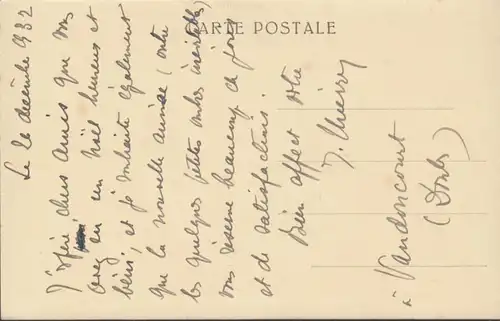 CARTE POSTALE
Le 26 décembre 1932
J'espère, chers amis que vous
avez eu un Noël heureux et
béni, et je souhaite également
que la nouvelle année (outre
les quelques petites ombres inévitables)
vous réserve beaucoup de joies
et de satisfactions.
Bien affect vôtre
J.
à Vandoncourt
(Doubs)